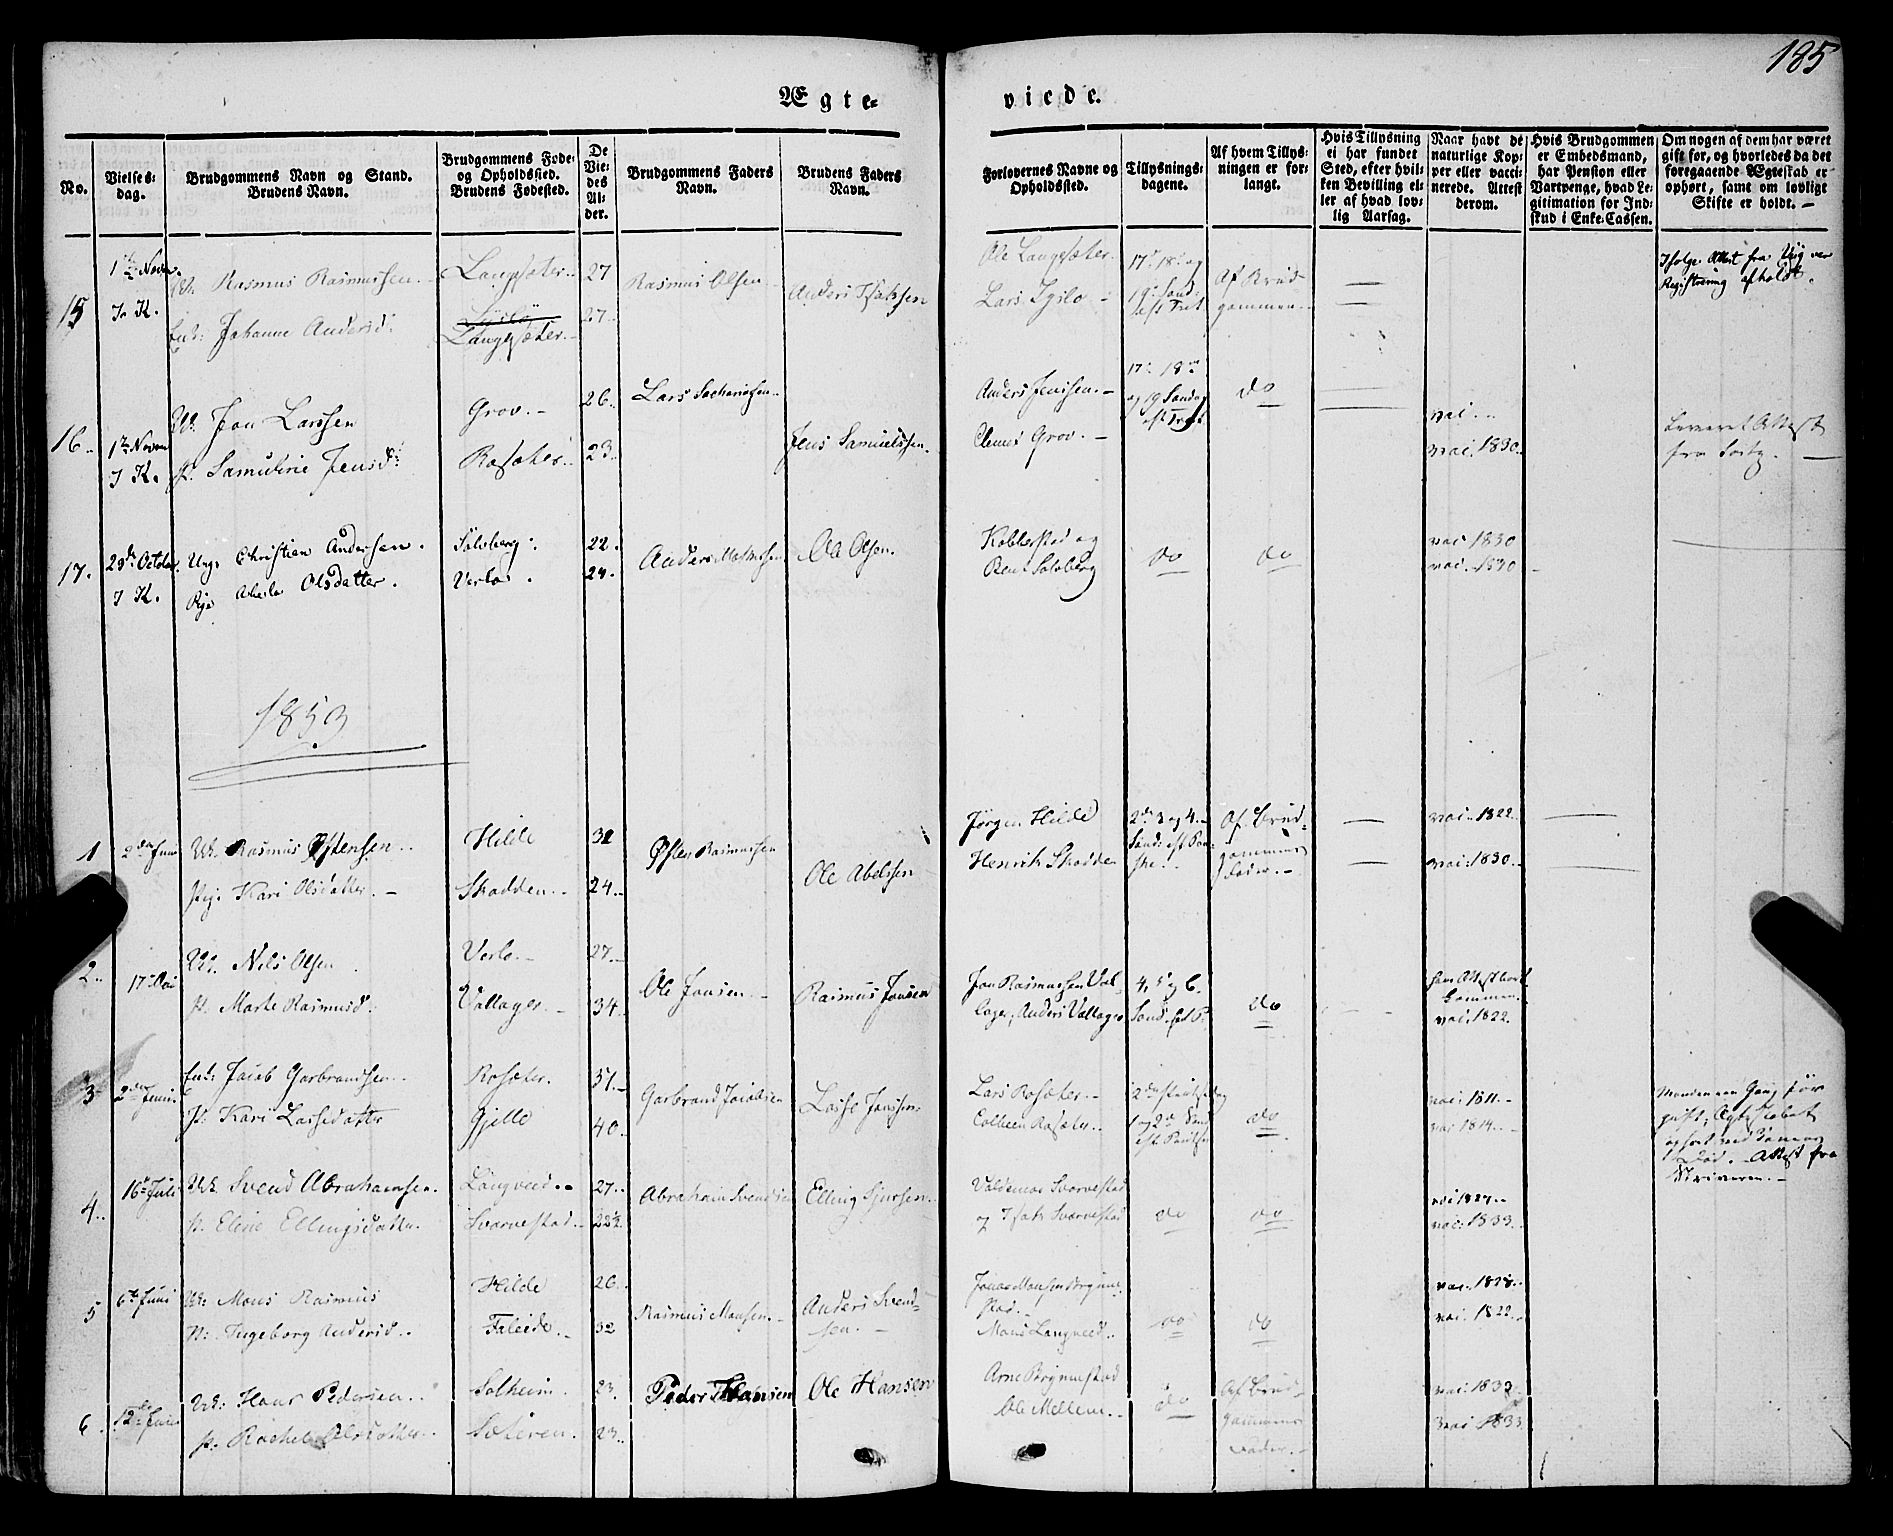 185
Ægte-
viede.
No.
Vielses-
dag.
Brudgommens Navn og Stand.
Brudens Navn.
Brudgommens Føde-
og Opholdssted.
Brudens Fødested.
De
Vie-
des
Al-
der.
Brudgommens Faders
Navn.
Brudens Faders
Navn.
Forlovernes Navne og
Opholdssted.
Tillysnings-
dagene.
Af hvem Tillys-
ningen er for-
langt.
Hvis Tillysning
ei har fundet
Sted, efter hvil-
ken Bevilling el-
ler af hvad lov-
lig Aarsag.
Naar havt de
naturlige Kop-
per eller vacci-
nerede. Attest
derom.
Hvis Brudgommen
er Embedsmand,
har Pension eller
Vartpenge, hvad Le-
gitimation for Ind-
skud i Enke-Cassen.
Om nogen af dem har været
gift før, og hvorledes da det
foregaaende Ægteskab er
ophørt, samt om lovligt
Skifte er holdt. –
15
1ste Novem.
I K.
Rasmus Rasmussen
Enk: Johanne Andersd:
Langesæter
Langesæter
27
27
Rasmus Olsen
Anders Isaksen
Ole Langesæter
Lars
17de 18de og
19de Sønd:
eft Tret
Af Brud-
gommen
Ifølge Attest fra
Registrering afholdt.
16
1ste Novem
I K.
Uk. Jon Larssen
P. Samuline Jensd:
Grov.
Rosæter
26
23
Lars
Jens Samuelssen
Anders Jenssen
Grov.
17de 18de
og 19 Søndag
eft Tret
do
vac.
vac. 1830
Leveret Attest
fra
17.
29de October
I K.
Ung: Christian Andersen.
Pige Olsdatter.
Solsberg
Verlo.
22
24
Anders
Ole Olsen.
og
Bent Solsberg
do
do
vac 1830
vac. 1830
1853
1
2den Juni
Uk. Rasmus Østensen
Pig. Kari Olsdatter.
Hilde
Skadden
31
24
Østen Rasmussen
Ole Abelssen
Jørgen Hilde
Henrik Skadden
2den 3 og 4
Sønd: eft Paa-
ske.
Af Brud-
gommens
Fader.
vac. 1822
vac: 1830
2
17de Mai
Uk. Nils Olsen
P. Marte Rasmusd.
Verlo
Vallager
27
34
Ole Jonsen
Rasmus Jonsen
Jon Rasmussen Val-
lager, Anders Vallager
4, 5 og 6.
Sønd. eft P.
do
vac. 1822.
3
2den Juni
Enk: Jacob Garbrandsen
P. Kari Lassedatter
Rosæter.
Gjelle
51
40
Garbrand Jacobsen
Lasse Jonssen
Lars Rosæter
Rosæter
1 og 2den Sønd
do
vac. 1811
vac 1814
Manden een Gang før
gift; Ægteskabet
ophørt ved Konens
Død. Attest fra
Skriveren.
4
16de Juli
Uk. Svend Abrahamsen.
P. Eline Ellingsdatter
Langveed
Svarvestad
27
22½
Abraham Svendsen
Elling Sjursen
Valdemar Svarvestad
og Isak Svarvestad
do
do
vac 1827
vac: 1833
5
6te Juni
Uk: Mons Rasmus
P: Ingeborg Andersd.
Hilde
Faleide
26
32
Rasmus Monsen
Anders Svend-
sen
stad.
Mons Langveed
do
do
vac. 1828
vac. 1822
6
12te Juni
Uk: Hans Pedersen
P. Rachel Olsdatter
Solheim.
Sæteren.
23
23
Peder Hansen
Ole Hansen
Arne Brynestad
Ole Mellem
do
Af Brud-
gommens
Fader.
vac: 1832
vac 1833